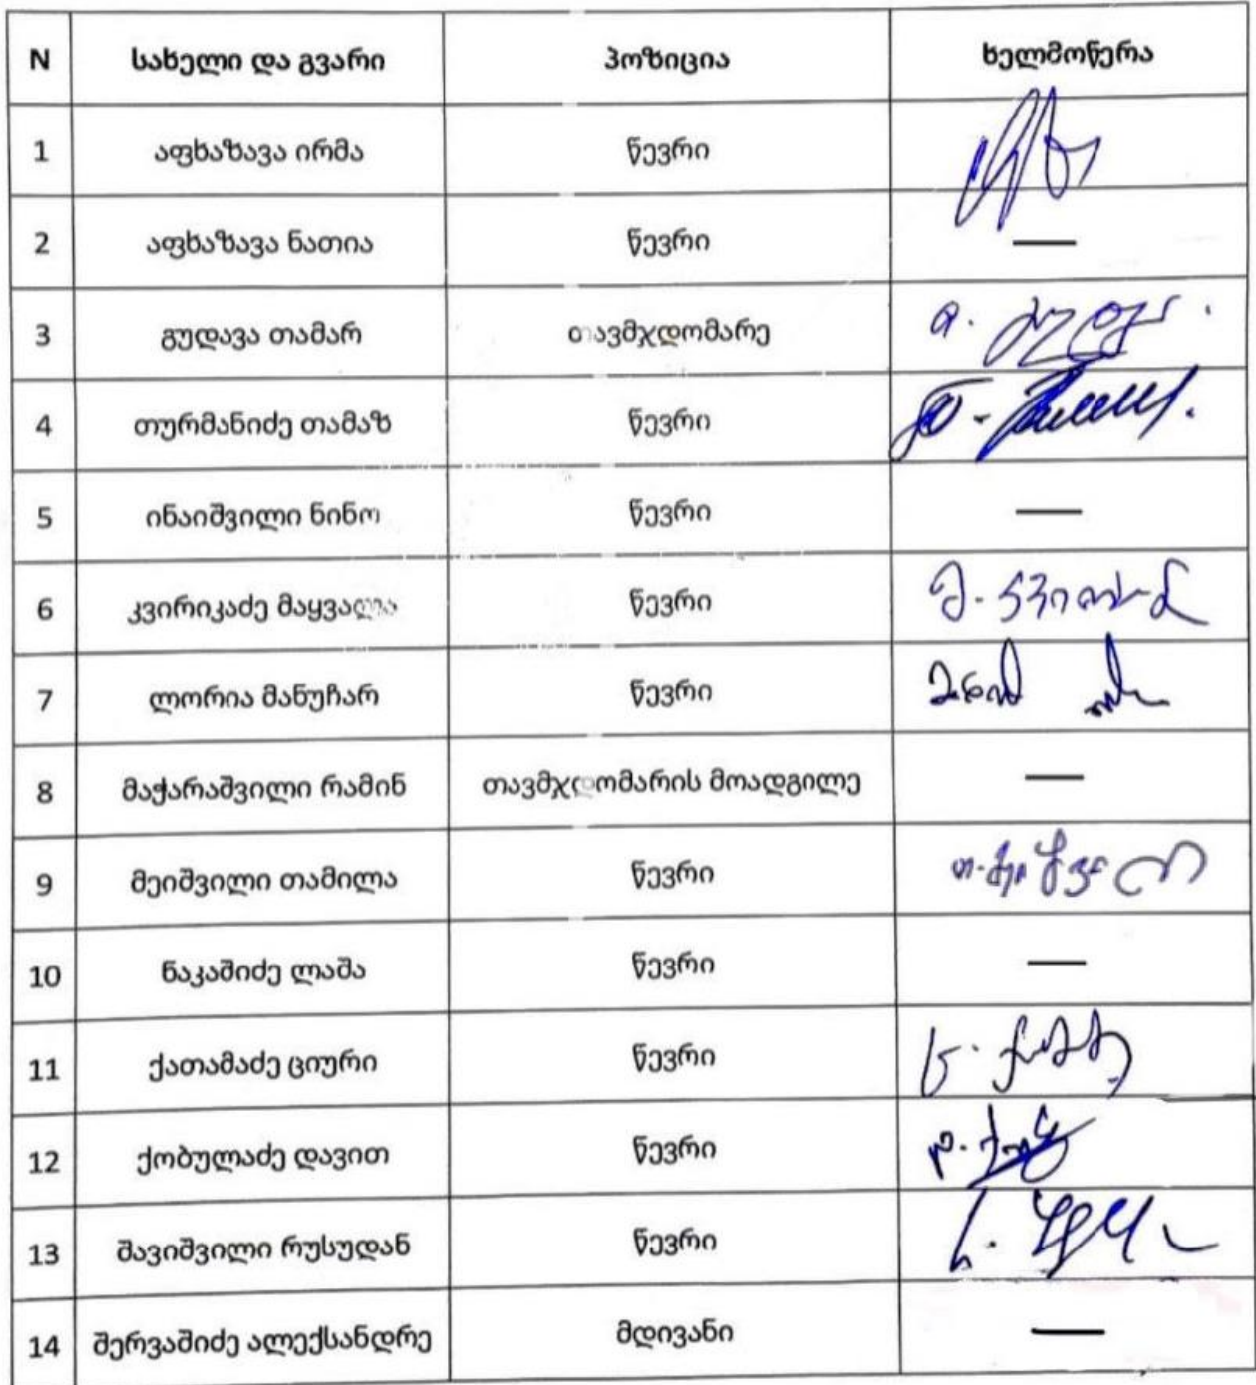 N სახელი და გვარი პოზიცია ხელმოწერა
1 აფხაზავა ირმა წევრი
2 აფხაზავა ნათია წევრი —
3 გუდავა თამარ თავმჯდომარე
4 თურმანიძე თამაზ წევრი
5 ინაიშვილი ნინო წევრი —
6 კვირიკაძე მაყვალა წევრი
7 ლორია მანუჩარ წევრი
8 მაჭარაშვილი რამინ თავმჯდომარის მოადგილე —
9 მეიშვილი თამილა წევრი
10 ნაკაშიძე ლაშა წევრი —
11 ქათამაძე ციური წევრი
12 ქობულაძე დავით წევრი
13 შავიშვილი რუსუდან წევრი
14 შერვაშიძე ალექსანდრე მდივანი —